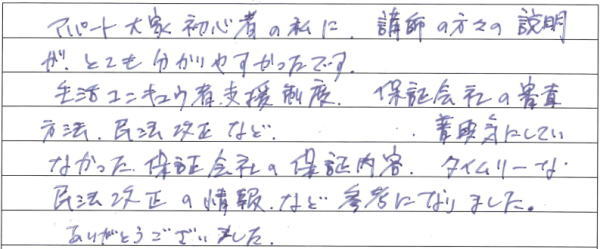 アパート大家初心者の私に、講師の方々の説明
が、とても分かりやすかったです。
生活コンキュウ者支援制度、保証会社の審査
方法、民法改正など、普段気にしてい
なかった保証会社の保証内容、タイムリーな
民法改正の情報、など参考になりました。
ありがとうございました。